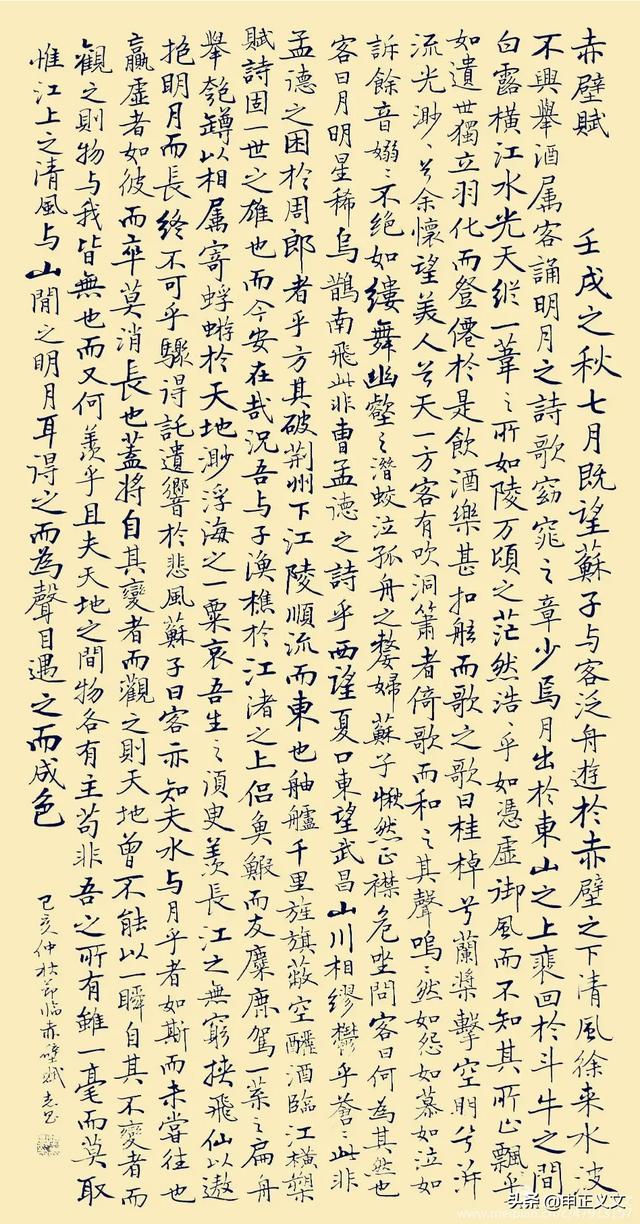 赤壁賦 壬戌之秋七月既望蘇子与客泛舟遊於赤壁之下清風徐来水波
不興舉酒属客誦明月之詩歌窈窕之章少焉月出於東山之上裴回於斗牛之間
白露横江水光天縱一葦之所如陵万頃之茫然浩〻乎如馮虛御風而不知其所止飄乎
如遺世獨立羽化而登僊於是飲酒樂甚扣舷而歌之歌曰桂棹兮蘭槳擊空明兮泝
流光渺〻兮余懷望美人兮天一方客有吹洞簫者倚歌而和之其聲嗚〻然如怨如慕如泣如
訴餘音嫋〻不绝如縷舞幽壑之潛蛟泣孤舟之嫠婦蘇子愀然正襟危坐問客曰何為其然也
客曰月明星稀烏鵲南飛此非曹孟德之詩乎西望夏口東望武昌山川相繆鬱乎蒼〻此非
孟德之困於周郎者乎方其破荆州下江陵順流而東也舳艫千里旌旗蔽空釃酒臨江横槊
賦詩固一世之雄也而今安在哉況吾与子漁樵於江渚之上侣魚鰕而友麋鹿駕一葉之扁舟
舉匏罇以相属寄蜉蝣於天地渺浮海之一粟哀吾生之湏臾羨長江之無窮挾飛仙以遨
抱明月而長終不可乎驟得託遺響於悲風蘇子曰客亦知夫水与月乎者如斯而未嘗往也
贏虛者如彼而卒莫消長也蓋將自其變者而觀之則天地曾不能以一瞬自其不變者而
觀之則物与我皆無也而又何羨乎且夫天地之間物各有主苟非吾之所有雖一毫而莫取
惟江上之清風与山間之明月耳得之而為聲目遇之而成色
己亥仲秋節临赤壁賦
头条 @申正义文